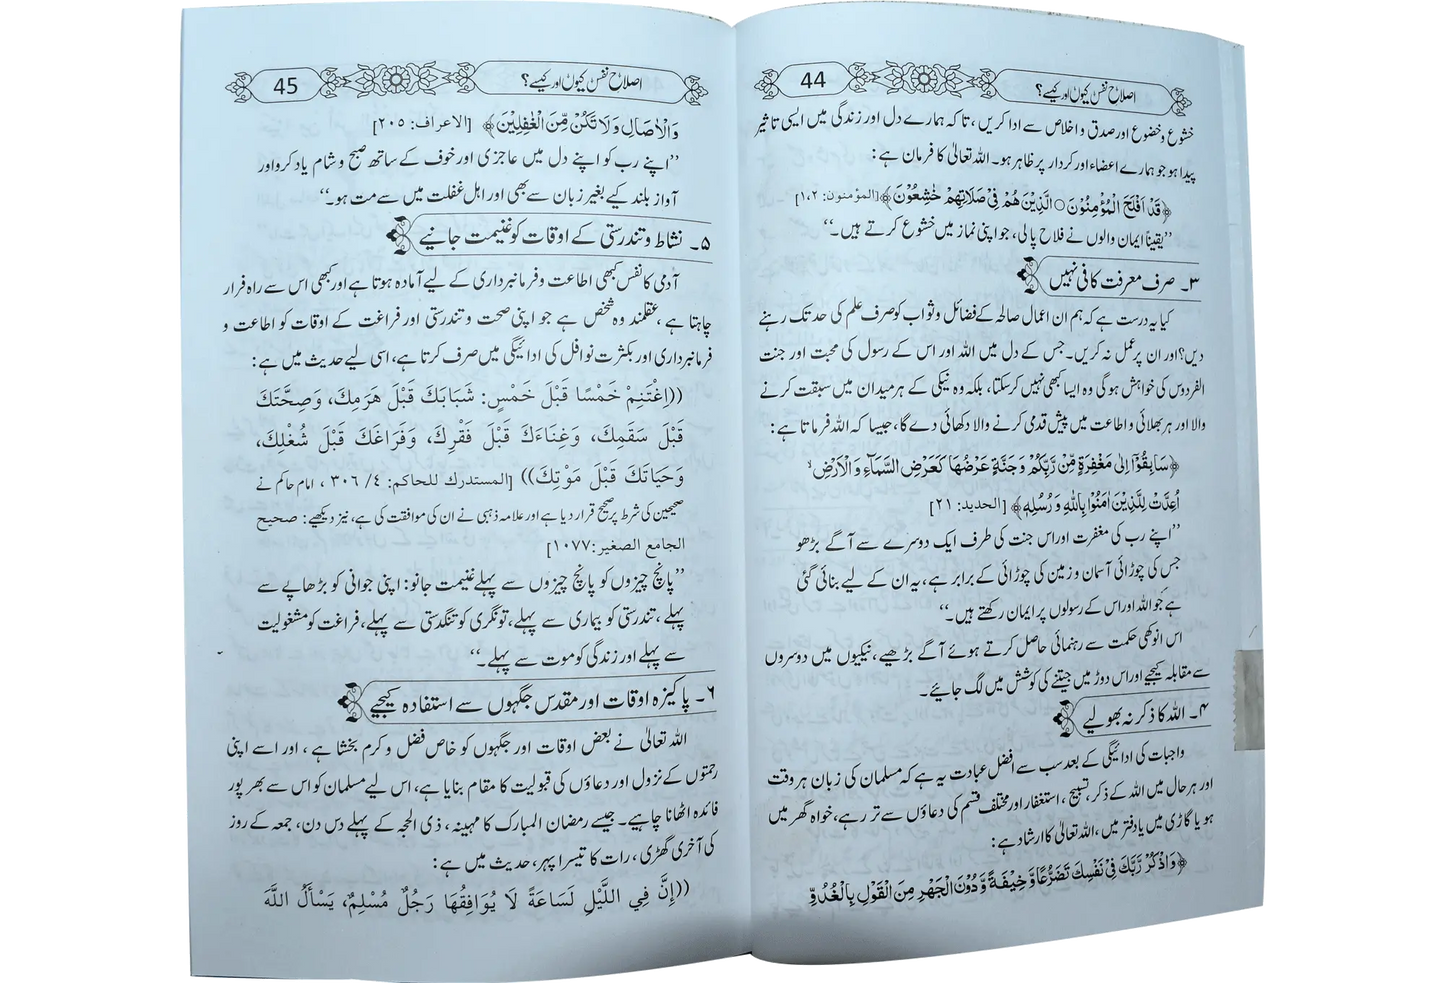 44
اصلاح نفس کیوں اور کیسے؟
خشوع و خضوع اور صدق و اخلاص سے ادا کریں، تاکہ ہمارے دل اور زندگی میں ایسی تاثیر
پیدا ہو جو ہمارے اعضاء اور کردار پر ظاہر ہو۔ اللہ تعالیٰ کا فرمان ہے:
﴿قَدْ اَفْلَحَ الْمُؤْمِنُوْنَ ○ الَّذِيْنَ هُمْ فِيْ صَلَاتِهِمْ خٰشِعُوْنَ﴾ [المؤمنون: ۱،۲]
’’یقیناً ایمان والوں نے فلاح پالی، جو اپنی نماز میں خشوع کرتے ہیں۔‘‘
۳۔ صرف معرفت کافی نہیں
کیا یہ درست ہے کہ ہم ان اعمال صالحہ کے فضائل و ثواب کو صرف علم کی حد تک رہنے
دیں؟ اور ان پر عمل نہ کریں۔ جس کے دل میں اللہ اور اس کے رسول کی محبت اور جنت
الفردوس کی خواہش ہوگی وہ ایسا کبھی نہیں کرسکتا، بلکہ وہ نیکی کے ہر میدان میں سبقت کرنے
والا اور ہر بھلائی و اطاعت میں پیش قدمی کرنے والا دکھائی دے گا، جیسا کہ اللہ فرماتا ہے:
﴿سَابِقُوْٓا اِلٰى مَغْفِرَةٍ مِّنْ رَّبِّكُمْ وَ جَنَّةٍ عَرْضُهَا كَعَرْضِ السَّمَآءِ وَ الْاَرْضِ ۙ
اُعِدَّتْ لِلَّذِيْنَ اٰمَنُوْا بِاللّٰهِ وَ رُسُلِهٖ﴾ [الحديد: ۲۱]
’’اپنے رب کی مغفرت اور اس جنت کی طرف ایک دوسرے سے آگے بڑھو
جس کی چوڑائی آسمان و زمین کی چوڑائی کے برابر ہے، یہ ان کے لیے بنائی گئی
ہے جو اللہ اور اس کے رسولوں پر ایمان رکھتے ہیں۔‘‘
اس انوکھی حکمت سے رہنمائی حاصل کرتے ہوئے آگے بڑھیے، نیکیوں میں دوسروں
سے مقابلہ کیجیے اور اس دوڑ میں جیتنے کی کوشش میں لگ جائیے۔
۴۔ اللہ کا ذکر نہ بھولیے
واجبات کی ادائیگی کے بعد سب سے افضل عبادت یہ ہے کہ مسلمان کی زبان ہر وقت
اور ہر حال میں اللہ کے ذکر، تسبیح، استغفار اور مختلف قسم کی دعاؤں سے تر رہے، خواہ گھر میں
ہو یا گاڑی میں یا دفتر میں، اللہ تعالیٰ کا ارشاد ہے:
﴿وَ اذْكُرْ رَّبَّكَ فِيْ نَفْسِكَ تَضَرُّعًا وَّ خِيْفَةً وَّ دُوْنَ الْجَهْرِ مِنَ الْقَوْلِ بِالْغُدُوِّ
45
اصلاح نفس کیوں اور کیسے؟
وَ الْاٰصَالِ وَ لَا تَكُنْ مِّنَ الْغٰفِلِيْنَ﴾ [الاعراف: ۲۰۵]
’’اپنے رب کو اپنے دل میں عاجزی اور خوف کے ساتھ صبح و شام یاد کرو اور
آواز بلند کیے بغیر زبان سے بھی اور اہل غفلت میں سے مت ہو۔‘‘
۵۔ نشاط و تندرستی کے اوقات کو غنیمت جانیے
آدمی کا نفس کبھی اطاعت و فرمانبرداری کے لیے آمادہ ہوتا ہے اور کبھی اس سے راہ فرار
چاہتا ہے، عقلمند وہ شخص ہے جو اپنی صحت و تندرستی اور فراغت کے اوقات کو اطاعت و
فرمانبرداری اور بکثرت نوافل کی ادائیگی میں صرف کرتا ہے، اسی لیے حدیث میں ہے:
((اِغْتَنِمْ خَمْسًا قَبْلَ خَمْسٍ: شَبَابَكَ قَبْلَ هَرَمِكَ، وَصِحَّتَكَ
قَبْلَ سَقَمِكَ، وَغِنَاءَكَ قَبْلَ فَقْرِكَ، وَفَرَاغَكَ قَبْلَ شُغْلِكَ،
وَحَيَاتَكَ قَبْلَ مَوْتِكَ)) [المستدرك للحاكم: ٤/ ٣٠٦ ، امام حاکم نے
صحیحین کی شرط پر صحیح قرار دیا ہے اور علامہ ذہبی نے ان کی موافقت کی ہے، نیز دیکھیے: صحيح
الجامع الصغير: ١٠٧٧]
’’پانچ چیزوں کو پانچ چیزوں سے پہلے غنیمت جانو: اپنی جوانی کو بڑھاپے سے
پہلے، تندرستی کو بیماری سے پہلے، تونگری کو تنگدستی سے پہلے، فراغت کو مشغولیت
سے پہلے اور زندگی کو موت سے پہلے۔‘‘
۶۔ پاکیزہ اوقات اور مقدس جگہوں سے استفادہ کیجیے
اللہ تعالیٰ نے بعض اوقات اور جگہوں کو خاص فضل و کرم بخشا ہے، اور اسے اپنی
رحمتوں کے نزول اور دعاؤں کی قبولیت کا مقام بنایا ہے، اس لیے مسلمان کو اس سے بھر پور
فائدہ اٹھانا چاہیے۔ جیسے رمضان المبارک کا مہینہ، ذی الحجہ کے پہلے دس دن، جمعہ کے روز
کی آخری گھڑی، رات کا تیسرا پہر، حدیث میں ہے:
((إِنَّ فِي اللَّيْلِ لَسَاعَةً لَا يُوَافِقُهَا رَجُلٌ مُسْلِمٌ، يَسْأَلُ اللَّهَ